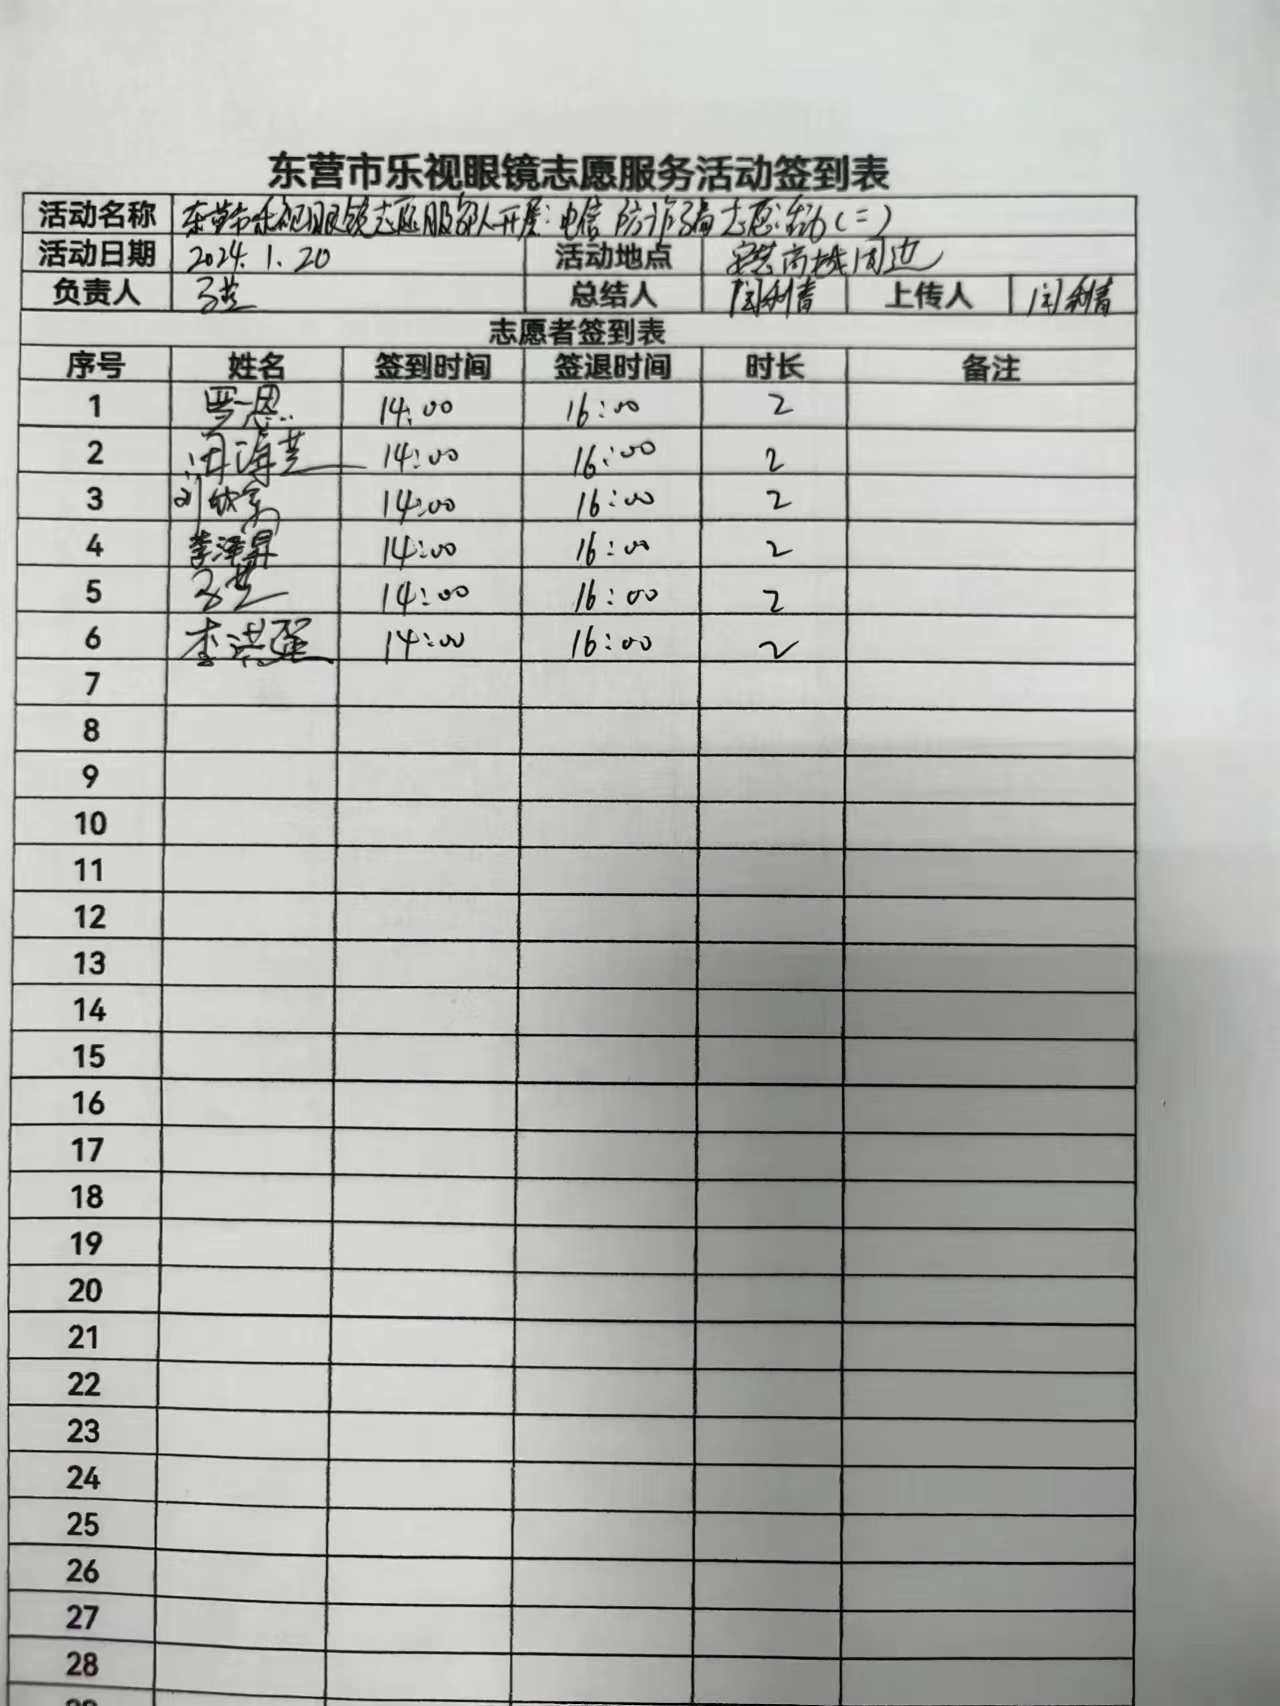 东营市乐视眼镜志愿服务活动签到表
活动名称 东营市乐视眼镜志愿服务队开展:电信防诈骗志愿活动(二)
活动日期 2024.1.20 活动地点 商城周边
负责人 总结人 闫利青 上传人 闫利青
志愿者签到表
序号 姓名 签到时间 签退时间 时长 备注
1 14:00 16:00 2
2 14:00 16:00 2
3 14:00 16:00 2
4 李泽昇 14:00 16:00 2
5 14:00 16:00 2
6 李洪强 14:00 16:00 2
7
8
9
10
11
12
13
14
15
16
17
18
19
20
21
22
23
24
25
26
27
28